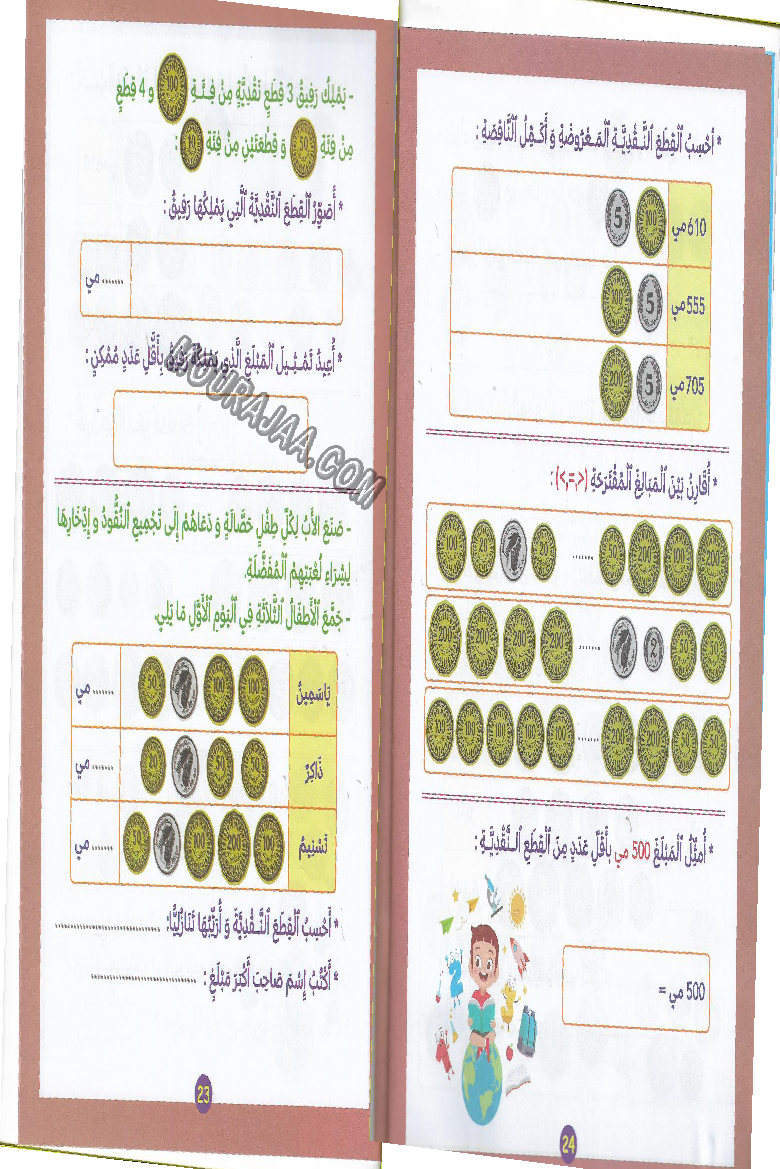 - يَمْلِكُ رَفِيقُ 3 قِطَعٍ نَقْدِيَّةٍ مِنْ فِئَةِ 100 و 4 قِطَعٍ
مِنْ فِئَةِ 50 وَ قِطْعَتَيْنِ مِنْ فِئَةِ 10 :
* أُصَوِّرُ ٱلْقِطَعَ ٱلنَّقْدِيَّةَ ٱلَّتِي يَمْلِكُهَا رَفِيقُ :
....... مي
* أُعِيدُ تَمْثِيلَ ٱلْمَبْلَغِ ٱلَّذِي يَمْلِكُهُ رَفِيقُ بِأَقَلِّ عَدَدٍ مُمْكِنٍ :
MOURAJAA.COM
- صَنَعَ الأَبُ لِكُلِّ طِفْلٍ حَصَّالَةً وَ دَعَاهُمْ إِلَى تَجْمِيعِ ٱلنُّقُودِ و إِدِّخَارِهَا
لِشِرَاءِ لُعْبَتِهِمُ ٱلْمُفَضَّلَةِ.
- جَمَّعَ ٱلْأَطْفَالُ ٱلثَّلَاثَةُ فِي ٱلْيَوْمِ ٱلْأَوَّلِ مَا يَلِي.
يَاسَمِينُ 100 100 1 50 ....... مي
ذَاكِرُ 50 50 1 20 ....... مي
تَسْنِيمُ 100 200 100 1 50 ....... مي
* أَحْسِبُ ٱلْقِطَعَ ٱلنَّقْدِيَّةَ وَ أُرَتِّبُهَا تَنَازُلِيًّا: .......................
* أَكْتُبُ إِسْمَ صَاحِبَ أَكْبَرَ مَبْلَغٍ : .......................
23
* أَحْسِبُ ٱلْقِطَعَ ٱلنَّقْدِيَّةِ ٱلْمَعْرُوضَةِ وَ أُكْمِلُ ٱلنَّاقِصَةِ :
610 مي 100 5
555 مي 5 100
705 مي 5 200
* أُقَارِنُ بَيْنَ ٱلْمَبَالِغِ ٱلْمُقْتَرَحَةِ (<,=,>) :
100 20 1 20 ....... 50 200 100 200
200 200 200 200 ....... 1 2 50 50
100 100 100 100 100 ....... 200 200 50 50
* أُمَثِّلُ ٱلْمَبْلَغَ 500 مي بِأَقَلِّ عَدَدٍ مِنَ ٱلْقِطَعِ ٱلنَّقْدِيَّةِ :
500 مي =
24